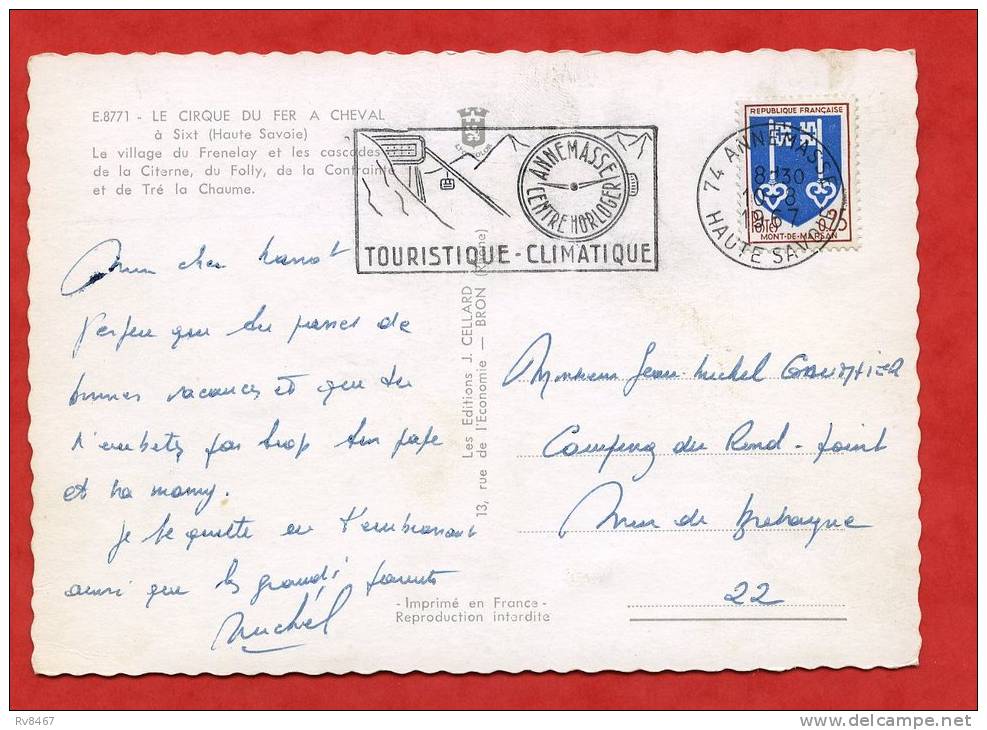 E.8771 - LE CIRQUE DU FER A CHEVAL
à Sixt (Haute Savoie)
Le village du Frenelay et les cascades
de la Citerne, du Folly, de la Contrainte
et de Tré la Chaume.
ANNEMASSE
CENTRE HORLOGER
TOURISTIQUE - CLIMATIQUE
REPUBLIQUE FRANÇAISE
0,25
MONT-DE-MARSAN
74 ANNEMASSE
8H30
10-8
1967
HAUTE SAVOIE
Mon cher
J'espère que tu passes de
bonnes vacances et que tu
n'embêtes pas trop ton papa
et ta mamy.
Je te quitte en t'embrassant
ainsi que les grands parents
Michel
Les Editions J. CELLARD
13, rue de l'Economie — BRON (Rhône)
Monsieur Jean-Michel GAUTHIER
Camping du Rond-point
Mur de Bretagne
22
- Imprimé en France -
Reproduction interdite
Rv8467
www.delcampe.net